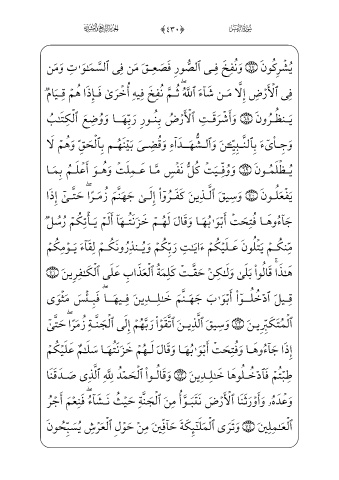 سورة الزمر ﴿٤٣٠﴾ الجزء الرابع والعشرون
يُشْرِكُونَ ۝ وَنُفِخَ فِى ٱلصُّورِ فَصَعِقَ مَن فِى ٱلسَّمَـٰوَٰتِ وَمَن
فِى ٱلْأَرْضِ إِلَّا مَن شَآءَ ٱللَّهُ ۖ ثُمَّ نُفِخَ فِيهِ أُخْرَىٰ فَإِذَا هُمْ قِيَامٌ
يَنظُرُونَ ۝ وَأَشْرَقَتِ ٱلْأَرْضُ بِنُورِ رَبِّهَا وَوُضِعَ ٱلْكِتَـٰبُ
وَجِا۟ىٓءَ بِٱلنَّبِيِّـۧنَ وَٱلشُّهَدَآءِ وَقُضِىَ بَيْنَهُم بِٱلْحَقِّ وَهُمْ لَا
يُظْلَمُونَ ۝ وَوُفِّيَتْ كُلُّ نَفْسٍ مَّا عَمِلَتْ وَهُوَ أَعْلَمُ بِمَا
يَفْعَلُونَ ۝ وَسِيقَ ٱلَّذِينَ كَفَرُوٓا۟ إِلَىٰ جَهَنَّمَ زُمَرًا ۖ حَتَّىٰٓ إِذَا
جَآءُوهَا فُتِحَتْ أَبْوَٰبُهَا وَقَالَ لَهُمْ خَزَنَتُهَآ أَلَمْ يَأْتِكُمْ رُسُلٌ
مِّنكُمْ يَتْلُونَ عَلَيْكُمْ ءَايَـٰتِ رَبِّكُمْ وَيُنذِرُونَكُمْ لِقَآءَ يَوْمِكُمْ
هَـٰذَا ۚ قَالُوا۟ بَلَىٰ وَلَـٰكِنْ حَقَّتْ كَلِمَةُ ٱلْعَذَابِ عَلَى ٱلْكَـٰفِرِينَ ۝
قِيلَ ٱدْخُلُوٓا۟ أَبْوَٰبَ جَهَنَّمَ خَـٰلِدِينَ فِيهَا ۖ فَبِئْسَ مَثْوَى
ٱلْمُتَكَبِّرِينَ ۝ وَسِيقَ ٱلَّذِينَ ٱتَّقَوْا۟ رَبَّهُمْ إِلَى ٱلْجَنَّةِ زُمَرًا ۖ حَتَّىٰٓ
إِذَا جَآءُوهَا وَفُتِحَتْ أَبْوَٰبُهَا وَقَالَ لَهُمْ خَزَنَتُهَا سَلَـٰمٌ عَلَيْكُمْ
طِبْتُمْ فَٱدْخُلُوهَا خَـٰلِدِينَ ۝ وَقَالُوا۟ ٱلْحَمْدُ لِلَّهِ ٱلَّذِى صَدَقَنَا
وَعْدَهُۥ وَأَوْرَثَنَا ٱلْأَرْضَ نَتَبَوَّأُ مِنَ ٱلْجَنَّةِ حَيْثُ نَشَآءُ ۖ فَنِعْمَ أَجْرُ
ٱلْعَـٰمِلِينَ ۝ وَتَرَى ٱلْمَلَـٰٓئِكَةَ حَآفِّينَ مِنْ حَوْلِ ٱلْعَرْشِ يُسَبِّحُونَ